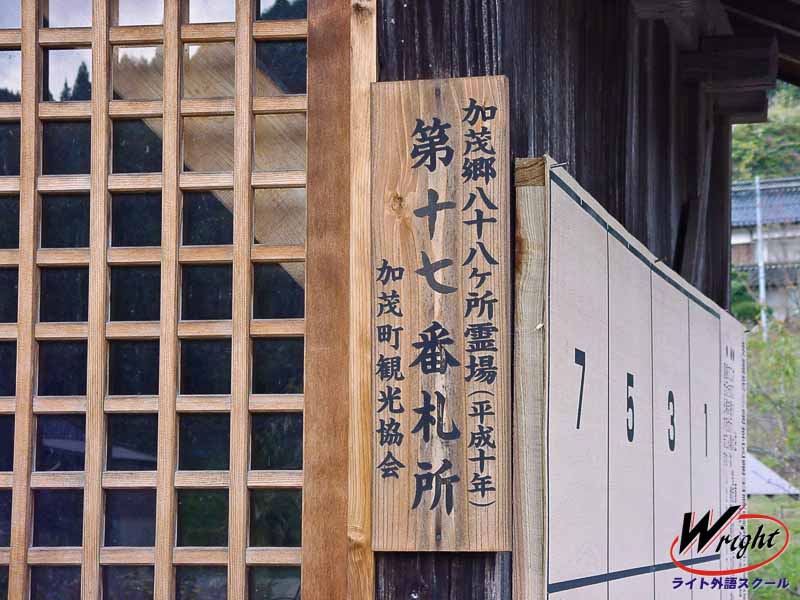 加茂郷八十八ヶ所霊場(平成十年)
第十七番札所
加茂町観光協会
7
5
3
1
Wright
ライト外語スクール